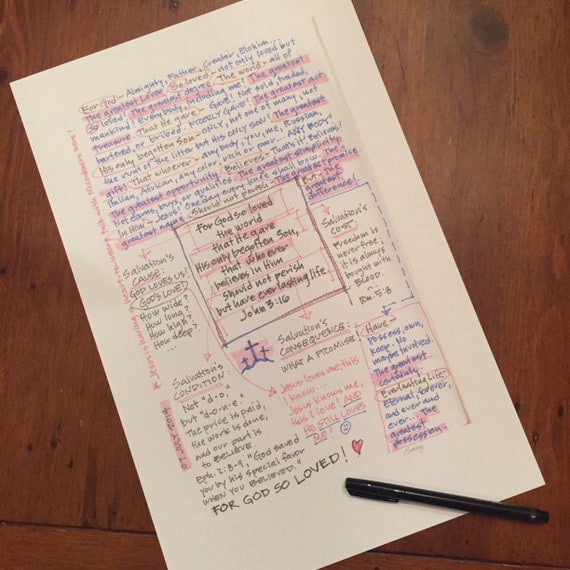 For God - Almighty, Father, Creator, Elohim...
The greatest Lover. So loved - not only loved but
So loved! The greatest degree. The world - all of
mankind! Everybody, including me! The greatest
treasure. That He gave - Gave! Not sold, traded,
bartered, or bribed. FREELY GAVE! The greatest act.
His only begotten Son - ONLY, not one of many, not
the runt of the litter but His ONLY SON! The greatest
gift! That whoever - any body, you, me, Russian,
Italian, African, any color, rich or poor... ANY BODY!
The greatest opportunity. Believes - That's it! Believe!
Not earns, buys, or qualifies. The greatest simplicity.
In Him - Jesus! One day every knee shall bow. The
greatest name. Should not perish - The greatest promise.
But - The
greatest
difference!
For God so loved
the world
that He gave
His only begotten Son,
that whoever
believes in Him
should not perish
but have everlasting life.
John 3:16
Salvation's
COST:
Freedom is
never free;
it is always
bought with
BLOOD.
Rm. 5:8
Salvation's
CAUSE:
GOD LOVES US!
GOD'S LOVE!
How wide?
How long?
How high?
How deep?
...
Salvation's
CONSEQUENCE:
WHAT A PROMISE!
Jesus loves me this
I know...
Jesus knows me,
this I love! AND
HE STILL LOVES
ME!
Salvation's
CONDITION:
Not "d-o,"
but "d-o-n-e."
The price is paid,
the work is done,
and our part is
to BELIEVE.
Eph. 2:8-9, "God saved
you by his special favor
WHEN YOU BELIEVED."
FOR GOD SO LOVED!
Have -
Possess, own,
keep. No
maybe involved.
The greatest
certainty.
Everlasting Life -
Eternal, forever,
and ever and
ever... The
greatest
possession.